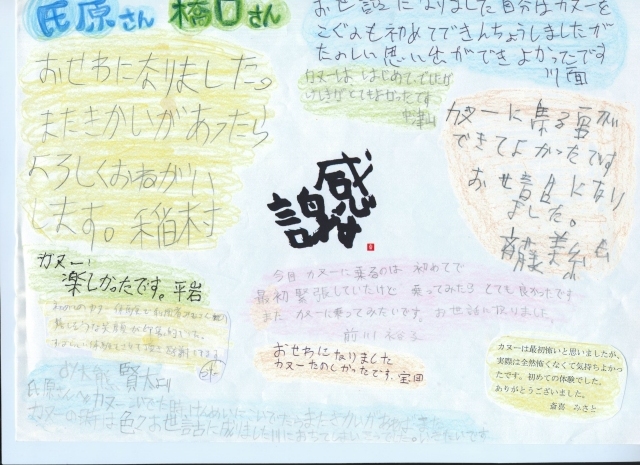 氏原さん 橋口さん
お世話になりました自分はカヌーを
こぐのも初めてできんちょうしましたが
たのしい思い出ができよかったです
川面
カヌーは、はじめてでしたが
けしきがとてもよかったです
おせわになりました。
またきかいがあったら
よろしくおねがい
します。稲村
カヌーに乗る事が
できてよかったです
お世話になり
ました。
感謝
カヌー
楽しかったです。平岩
今日カヌーに乗るのは初めてで
最初緊張していたけど 乗ってみたら とても良かったです
また カヌーに乗ってみたいです。お世話になりました。
前川
おせちになりました
カヌーたのしかったです。宝田
カヌーは最初怖いと思いましたが、
実際は全然怖くなくて気持ちよかっ
たです。初めての体験でした。
ありがとうございました。
斎喜 みさと
賢太より
氏原さんへ
カヌーの時は色々お世話に